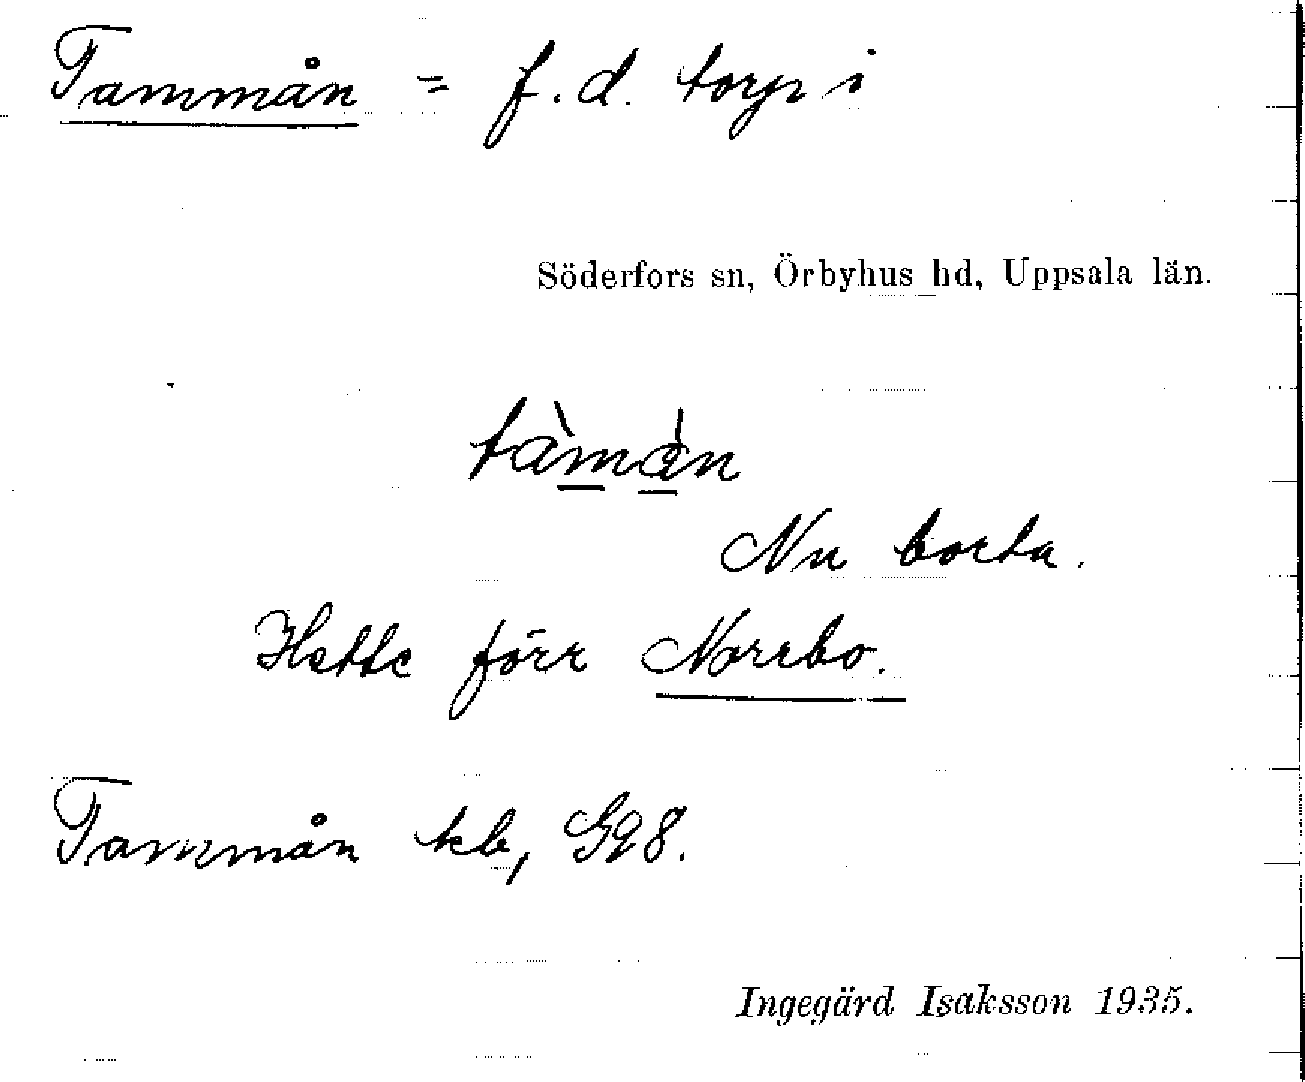 Tammån = f.d. torp i
Söderfors sn, Örbyhus hd, Uppsala län.
tàmån
Nu borta.
Hette förr Norrbo.
Tammån kb, G98.
Ingegärd Isaksson 1935.